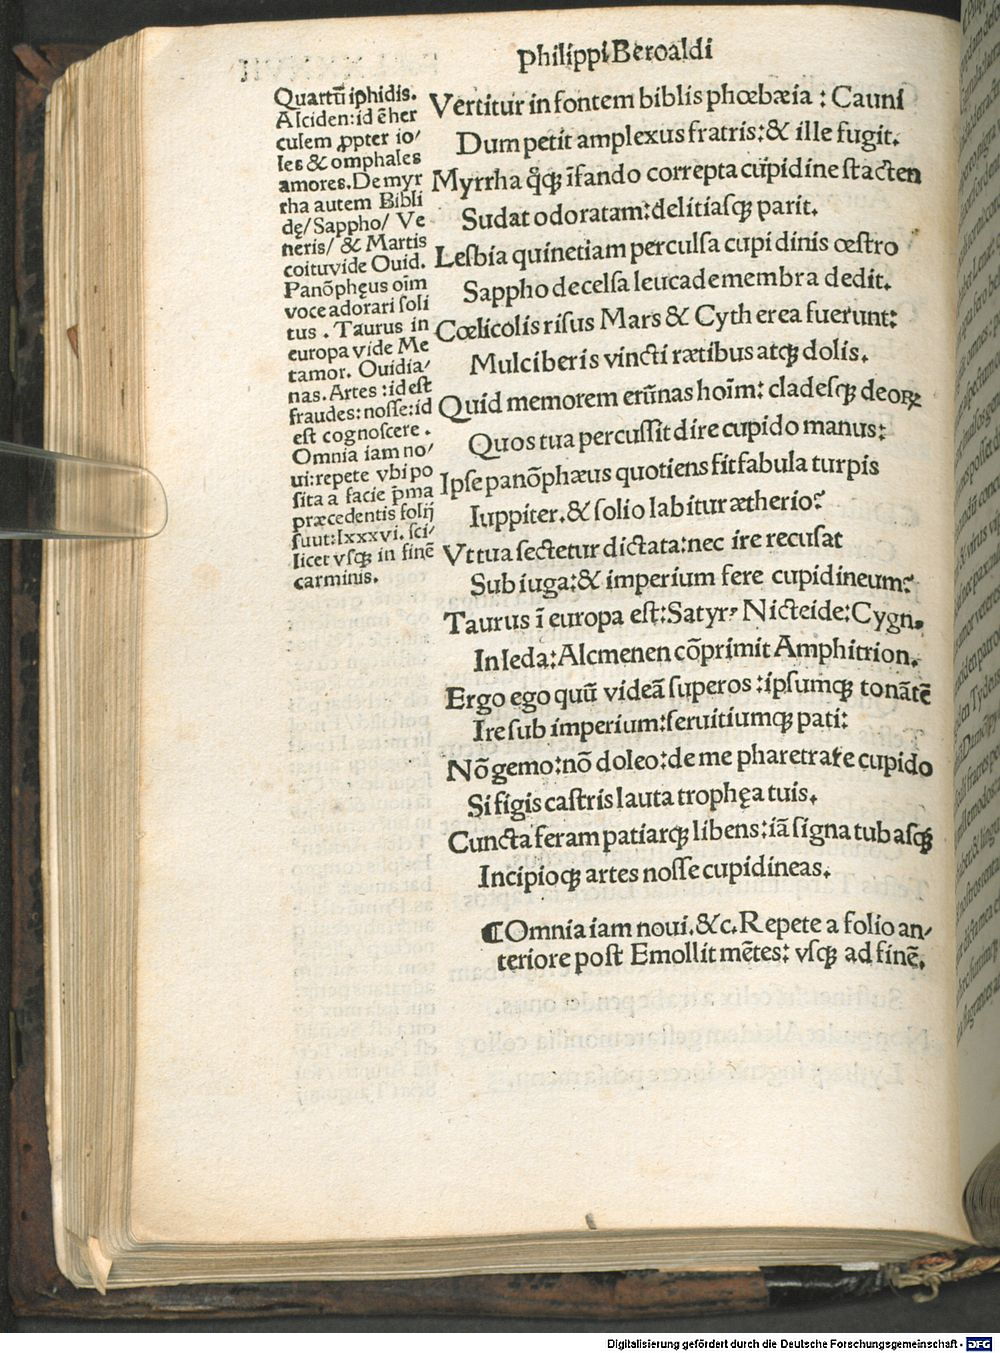 Philippi Beroaldi
Quartū iphidis.
Alciden: id ē her
culem ꝓpter io/
les & omphales
amores. De myr
rha autem Bibli
dę/ Sappho/ Ve
neris/ & Martis
coitu vide Ouid.
Panōphęus oīm
voce adorari soli
tus . Taurus in
europa vide Me
tamor. Ouidia/
nas. Artes : id est
fraudes: nosse: id
est cognoscere .
Omnia iam no/
ui: repete vbi po
sita a facie p̄ma
præcedentis folij
suut: lxxxvi. sci/
licet vsqꝫ in finē
carminis.
Vertitur in fontem biblis phœbæia : Cauni
Dum petit amplexus fratris: & ille fugit.
Myrrha q̊qꝫ īfando correpta cupidine stacten
Sudat odoratam: delitiasqꝫ parit.
Lesbia quinetiam perculsa cupidinis œstro
Sappho de celsa leucade membra dedit.
Cœlicolis risus Mars & Cytherea fuerunt:
Mulciberis vincti rætibus atqꝫ dolis.
Quid memorem erūnas hoīm: cladesqꝫ deoꝝ
Quos tua percussit dire cupido manus:
Ipse panōphæus quotiens fit fabula turpis
Iuppiter. & solio labitur ætherio?
Vt tua sectetur dictata: nec ire recusat
Sub iuga: & imperium fere cupidineum?
Taurus ī europa est: Satyrꝰ Nicteide: Cygn.
In leda: Alcmenen cōprimit Amphitrion.
Ergo ego quū videā superos : ipsumqꝫ tonātē
Ire sub imperium: seruitiumqꝫ pati:
Nō gemo: nō doleo: de me pharetrate cupido
Si figis castris lauta trophęa tuis.
Cuncta feram patiarqꝫ libens: iā signa tubasqꝫ
Incipioqꝫ artes nosse cupidineas.
¶ Omnia iam noui. &c. Repete a folio an/
teriore post Emollit mētes: vsqꝫ ad finē.
Digitalisierung gefördert durch die Deutsche Forschungsgemeinschaft - DFG